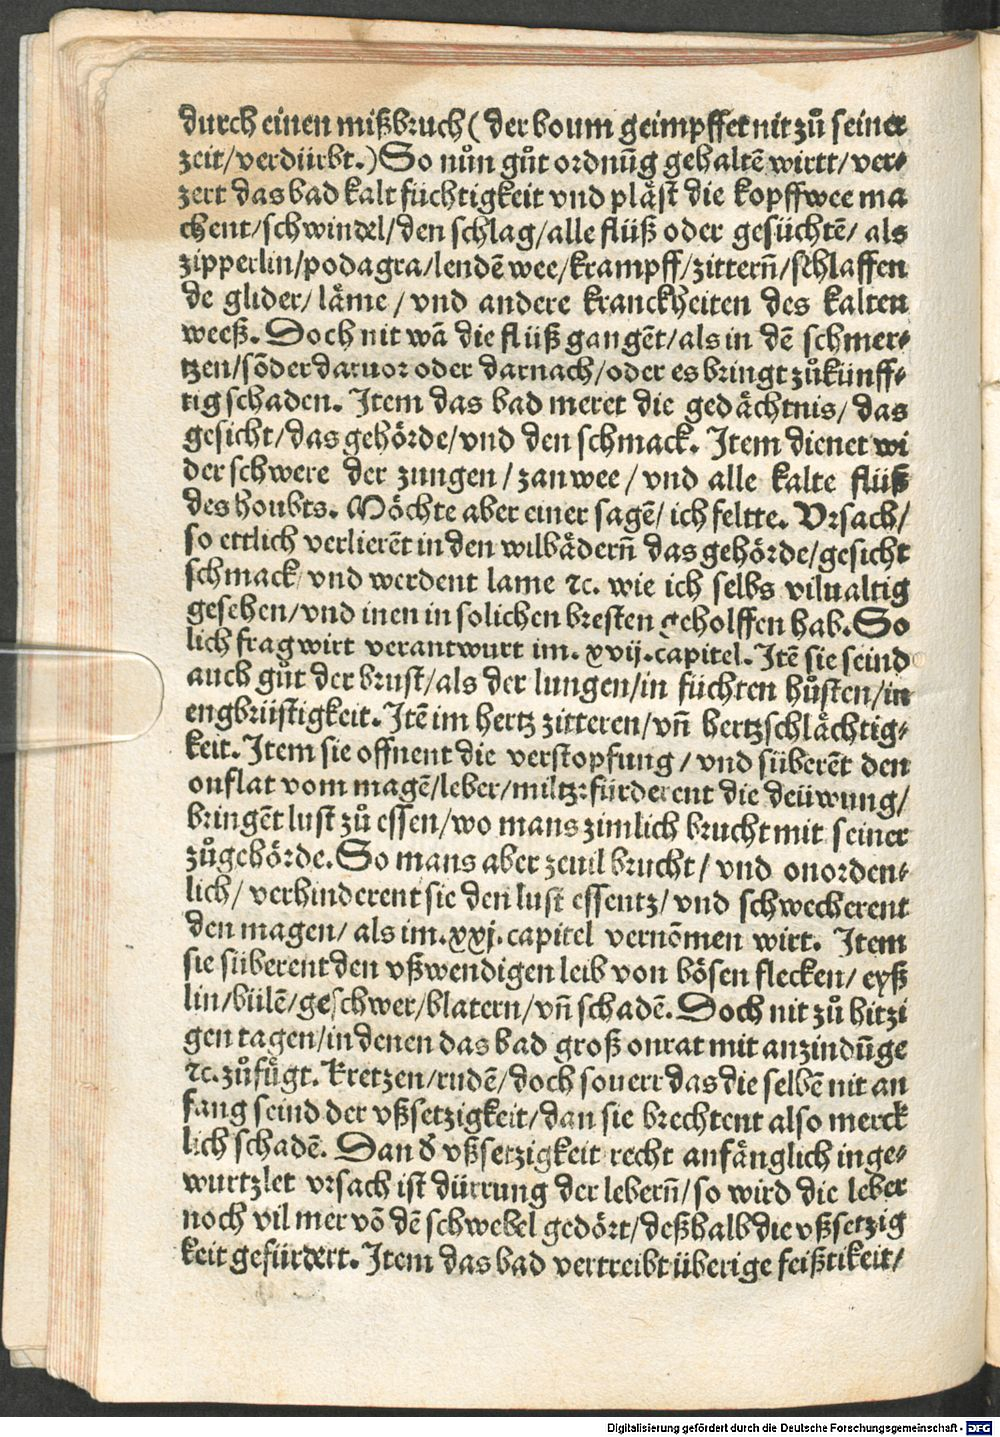 durch einen mißbruch (der boum geimpffet nit zů seiner
zeit/verdürbt.) So nůn gůt ordnūg gehaltē wirtt/ver⸗
zert das bad kalt füchtigkeit vnd pläst die kopffwee ma
chent/schwindel/den schlag/alle flüß oder gesüchtē/ als
zipperlin/podagra/lendē wee/krampff/zittern̄/schlaffen
de glider/ läme/ vnd andere kranckheiten des kalten
weeß. Doch nit wā die flüß gangēt/als in dē schmer⸗
tzen/sōder daruor oder darnach/oder es bringt zůkünff⸗
tig schaden. Item das bad meret die gedächtnis/ das
gesicht/das gehörde/vnd den schmack. Item dienet wi
der schwere der zungen/ zanwee/ vnd alle kalte flüß
des houbts. Möchte aber einer sagē/ ich feltte. Vrsach/
so ettlich verlierēt in den wilbädern̄ das gehörde/gesicht
schmack/vnd werdent lame ⁊c. wie ich selbs vilualtig
gesehen/vnd inen in solichen bresten geholffen hab. So
lich frag wirt verantwurt im. xvij. capitel. Itē sie seind
auch gůt der brust/als der lungen/in füchten hůsten/in
engbrüstigkeit. Itē im hertz zitteren/vn̄ hertzschlächtig⸗
keit. Item sie offnent die verstopfung/ vnd süberēt den
onflat vom magē/leber/miltz: fürderent die deüwung/
bringēt lust zů essen/wo mans zimlich brucht mit seiner
zůgehörde. So mans aber zeuil brucht/ vnd onorden⸗
lich/ verhinderent sie den lust essentz/ vnd schwecherent
den magen/ als im. xxj. capitel vernōmen wirt. Item
sie süberent den vßwendigen leib von bösen flecken/ eyß
lin/bülē/geschwer/blatern/vn̄ schadē. Doch nit zů hitzi
gen tagen/in denen das bad groß onrat mit anzindūge
⁊c. zůfügt. Kretzen/rudē/doch souerr das die selbē nit an
fang seind der vßsetzigkeit/dan sie brechtent also merck
lich schadē. Dan d̓ vßsetzigkeit recht anfänglich inge⸗
wurtzlet vrsach ist dürrung der lebern̄/so wird die leber
noch vil mer vō dē schwebel gedört/deßhalb die vßsetzig
keit gefürdert. Item das bad vertreibt überige feißtikeit/
Digitalisierung gefördert durch die Deutsche Forschungsgemeinschaft - DFG